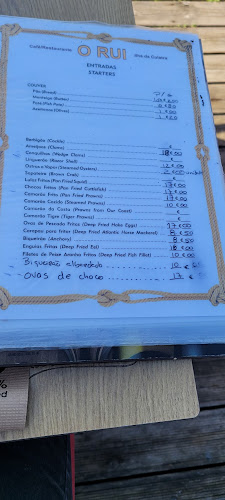 Café/Restaurante O RUI Ilha da Culatra
ENTRADAS
STARTERS
COUVER
Pão (Bread)
Manteiga (Butter)
Azeitonas (Olives)
Berbigão (Cockle)
Ameijoas (Clams)
Conquilhas (Wedge Clams) 18€50
Lingueirão (Razor Shell) €
Ostras a Vapor (Steamed Oysters)
Sapateira (Brown Crab)
Lulas Fritas (Pan Fried Squid)
Chocos Fritos (Pan Fried Cuttlefish) 17€00
Camarão Frito (Pan Fried Prawns) 17€00
Camarão Cozido (Steamed Prawns) 17€00
Camarão da Costa (Prawns from Our Coast) 10€00
Camarão Tigre (Tiger Prawns) €
Ovas de Pescada Fritas (Deep Fried Hake Eggs) 17€00
Carapau Frito (Deep Fried Atlantic Horse Mackerel) 8€50
Biqueirão (Anchovy) 8€50
Enguias Fritas (Deep Fried Eel) 18€00
Filetes de Peixe Aranha Fritos (Deep Fried Fish Fillet) 10€00
Biqueirão alimado 10€
OVAS DE CHOCO 17€